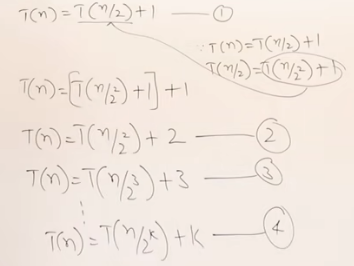 T(n)=T(n/2)+1 —— ①
∵ T(n)=T(n/2)+1
T(n/2)=T(n/2²)+1
T(n)=[T(n/2²)+1]+1
T(n)=T(n/2²)+2 —— ②
T(n)=T(n/2³)+3 —— ③
⋮
T(n)=T(n/2ᵏ)+K —— ④